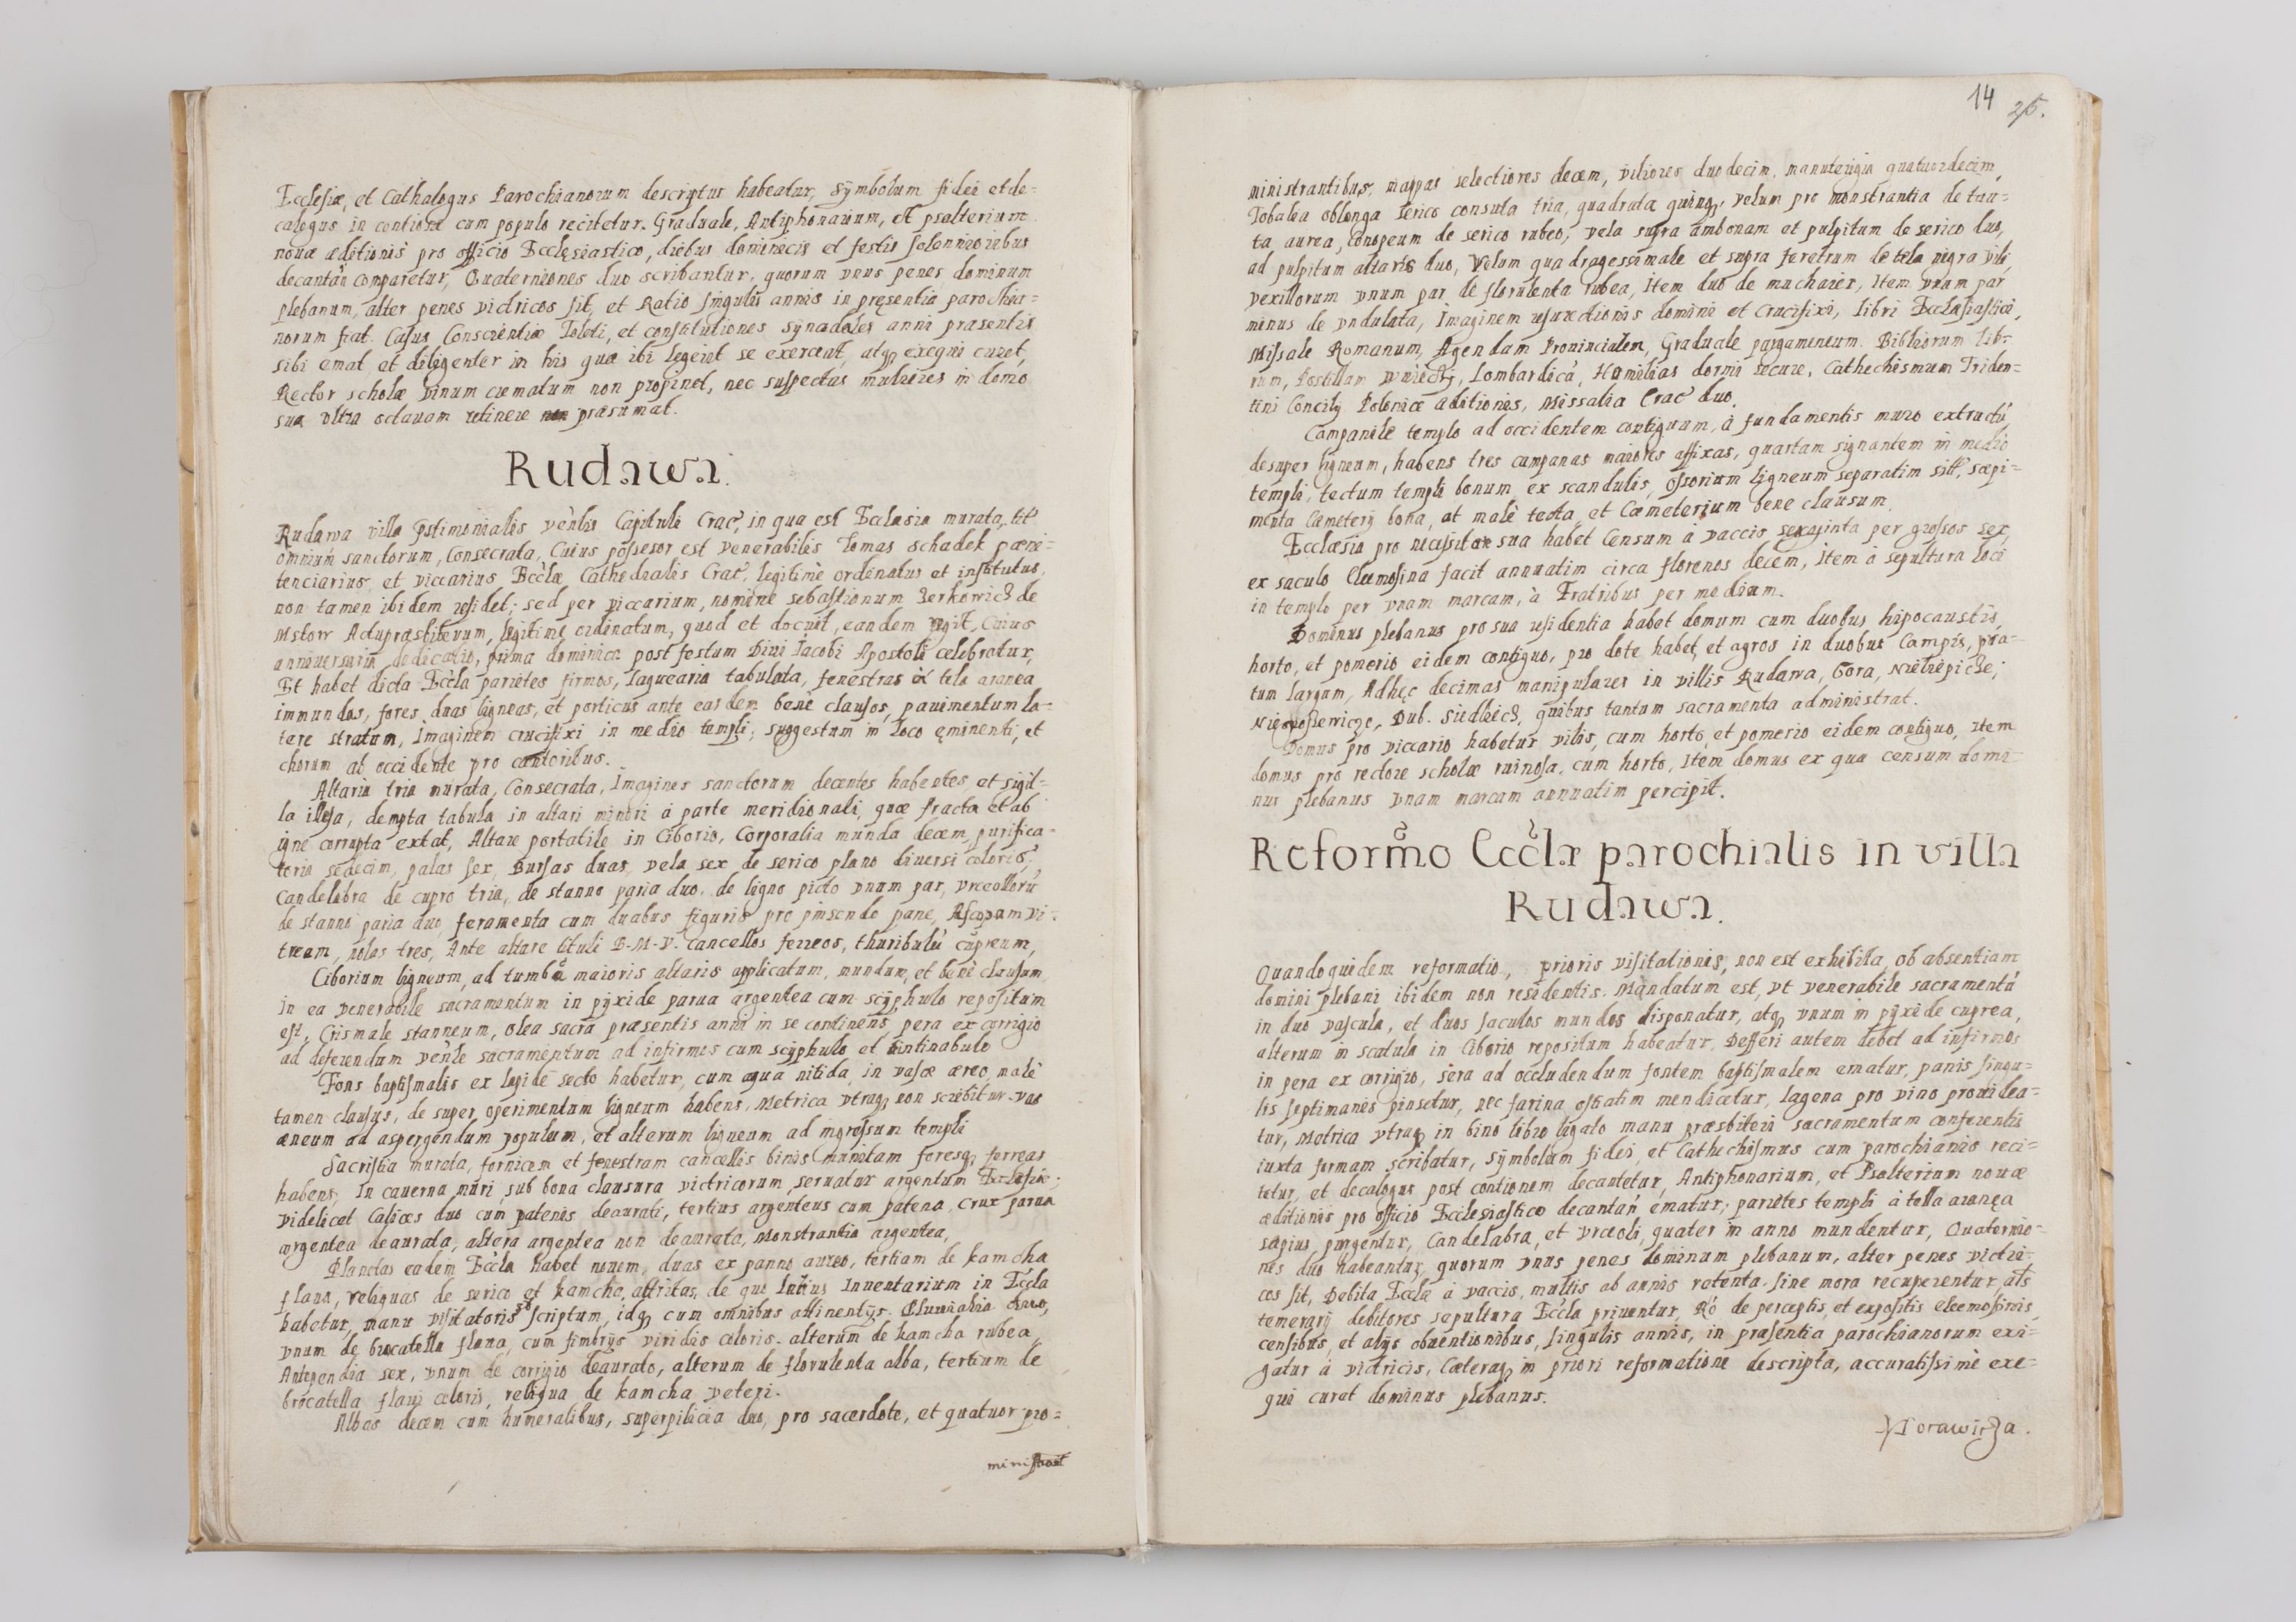 Ecclesiæ, et Cathalogus Parochianorum descriptus habeatur, Symbolum fidei et de=
calogus in contione cum populo recitetur. Graduale, Antiphonarium, et psalterium
nouæ æditionis pro officio Ecclesiastico, diebus dominicis et festis solennioribus
decantan comparetur, Quaterniones duo scribantur, quorum vnus penes dominum
plebanum, alter penes victricos sit, et Ratio singulis annis in pręsentia parochia=
norum fiat. Casus Conscientiæ Toleti, et constitutiones synodales anni præsentis
sibi emat et diligenter in his quæ ibi legerit se exerceat, atq exequi curet,
Rector scholæ vinum crematum non propinet, nec suspectas mulieres in domo
sua vltra octauam retinere præsumat.
Rudawa.
Rudawa villa pstimonialis venlis Capituli Crac, in qua est Ecclesia murata, tit
omnium sanctorum, Consecrata, Cuius possesor est venerabilis Tomas Schadek pæni=
tenciarius, et viccarius Ecclæ Cathedralis Crac, legitimè ordinatus et institutus,
non tamen ibidem residet; sed per viccarium, nomine sebastionum Zerkowicz de
Mstow Actupræsbiterum, legitime ordinatum, quod et docuit, eandem regit, Cuius
anniuersaria dedicatio, prima dominica post festum Diui Jacobi Apostoli celebratur,
Et habet dicta Eccla parietes firmos, laquearia tabulata, fenestras ex tela aranea
immundas, fores duas ligneas, et porticus ante easdem benè clausos, pauimentum la=
tere stratum, Imaginem crucifixi in medio templi, suggestum in loco ęminenti, et
chorum ab occidente pro cantoribus.
Altaria tria murata, Consecrata, Imagines sanctorum decentes habentes et sigil=
la illęsa, dempta tabula in altari minori à parte meridionali, quæ fracta et ab
igne corrupta extat, Altare portatile in Ciborio, Corporalia munda decem, purifica=
toria sedecim, palas sex, Bursas duas, vela sex de serico plano diuersi coloris,
Candelabra de cupro tria, de stanno paria duo, de ligno picto vnum par, vrceollorũ
de stanno paria duo, feramenta cum duabus figuris pro pinsendo pane, Ascopam vi=
tream, nolas tres, Ante altare tituli B-M-V- cancellos ferreos, thuribulũ cupreum,
Ciborium ligneum, ad tumbã maioris altaris applicatum, mundum, et benè clausum
in ea venerabile sacramentum in pÿxide parua argentea cum scÿphulo repositum
est, Crismale stanneum, olea sacra præsentis anni in se continens, pera ex corrigio
ad deferendum venle sacramentum ad infirmos cum scÿphulo et tintinabulo
Fons baptismalis ex lapide secto habetur, cum aqua nitida, in vase æreo, malè
tamen clausus, de super operimentum ligneum habens, Metrica vtraq non scribitur. vas
æneum ad aspergendum populum, et alterum ligneum ad ingressum templi
Sacristia murata, fornicem et fenestram cancellis binis munitam foresq ferreas
habens, In cauerna muri sub bona clausura victricorum, seruatur argentum Ecclesiæ,
videlicet Calices duo cum patenis deaurati, tertius argenteus cum patena, Crux parua
argentea deaurata, altera argentea non deaurata, Monstrantia argentea,
Planetas eadem Eccla habet nouem, duas ex panno aureo, tertiam de kamcha
flaua, reliquas de serico et kamcha attritas, de quo latius Inuentarium in Eccla
habetur, manu visitatoris scriptum, idq cum omnibus attinentÿs. Pluuialia duo,
vnum de brocatella flaua, cum fimbrÿs viridis coloris. alterum de kamcha rubea
Antependia sex, vnum de corrigio deaurato, alterum de florulenta alba, tertium de
brocatella flaui coloris, reliqua de kamcha veteri.
Albas decem cum humeralibus, superpilicia duo, pro sacerdote, et quatuor pro=
14 25.
ministrantibus, mappas selectiores decem, viliores duodecim, manutergia quatuordecim,
Tobalea oblonga serico consuta tria, quadrata quinq, velum pro monstrantia de tau=
ta aurea, Conopeum de serico rubeo, vela supra ambonam et pulpitum de serico duo,
ad pulpitum altaris duo, Velum quadragessimale et supra feretrum de tela nigra vili,
vexillorum vnum par de florulenta rubea, item duo de muchaier, item vnum par
minus de vndulata, Imaginem resurectionis domini et Crucifixi, libri Ecclesiastici,
Missale Romanum, Agendam Prouincialem, Graduale pargameneum. Bibliorum lib=
rum, Postillam, Lombardicà, Homilias dormi secure, Cathechismum Triden=
tini Concilÿ Polonicæ æditionis, Missalia Crac duo.
Campanile templo ad occidentem contiguum, à fundamentis muro extructũ
desuper ligneum, habens tres campanas maiores affixas, quartam signantem in medio
templi, tectum templi bonum ex scandulis, ossorium ligneum separatim sitũ, sæpi=
menta Cæmeterÿ bona, at malè tecta, et Cæmeterium bene clausum.
Ecclæsia pro necessitate sua habet Censum à vaccis sexaginta per grossos sex,
ex saculo Eleemosina facit annuatim circa florenos decem, Item à sepultura loci
in templo per vnam marcam, à Fratribus per mediam.
Dominus plebanus pro sua residentia habet domum cum duobus hipocaustis,
horto, et pomerio eidem contiguo, pro dote habet, et agros in duobus Campis, pra=
tum largum, Adhęc decimas manipulares in villis Rudawa, Gora, Nielepicze,
Niegossewicze, Dub. Siedliecz, quibus tantum sacramenta administrat.
Domus pro viccario habetur vilis, cum horto, et pomerio eidem contiguo, item
domus pro rectore scholæ ruinosa, cum horto, item domus ex qua censum domi=
nus plebanus vnam marcam annuatim percipit.
Reformo Ecclæ parochialis in villa
Rudawa.
Quandoquidem reformatio, prioris visitationis, non est exhibita, ob absentiam
domini plebani ibidem non residentis. Mandatum est, vt venerabile sacramentũ
in duo vascula, et duos saculos mundos disponatur, atq vnum in pÿxide cuprea,
alterum in scatula in Ciborio repositum habeatur. Defferi autem debet ad infirmos
in pera ex corrigio, sera ad occludendum fontem baptismalem ematur, panis singu=
lis septimanis pinsetur, nec farina ostiatim mendicetur, lagena pro vino prouidea=
tur, Metrica vtraq in bino libro ligato manu præsbiteri sacramentum conferentis
iuxta formam scribatur, Sÿmbolum fidei, et Cathechismus cum parochianis reci=
tetur, et decalogus post contionem decantetur, Antiphonarium, et Psalterium nouæ
æditionis pro officio Ecclesiastico decantan ematur, parietes templi à tella aranęa
sæpius purgentur, Candelabra, et vrceoli, quater in anno mundentur, Quaternio=
nes duo habeantur, quorum vnus penes dominum plebanum, alter penes victri=
cos sit, Debita Ecclæ à vaccis, multis ab annis retenta, sine mora recuperentur, als
temerarÿ debitores sepultura Eccla priuentur, Ro de perceptis, et expositis eleemosinis,
censibus, et alÿs obuentionibus, singulis annis, in præsentia parochianorum exi=
gatur à victricis, Cæteraq in priori reformatione descripta, accuratissimè exe=
qui curet dominus plebanus.